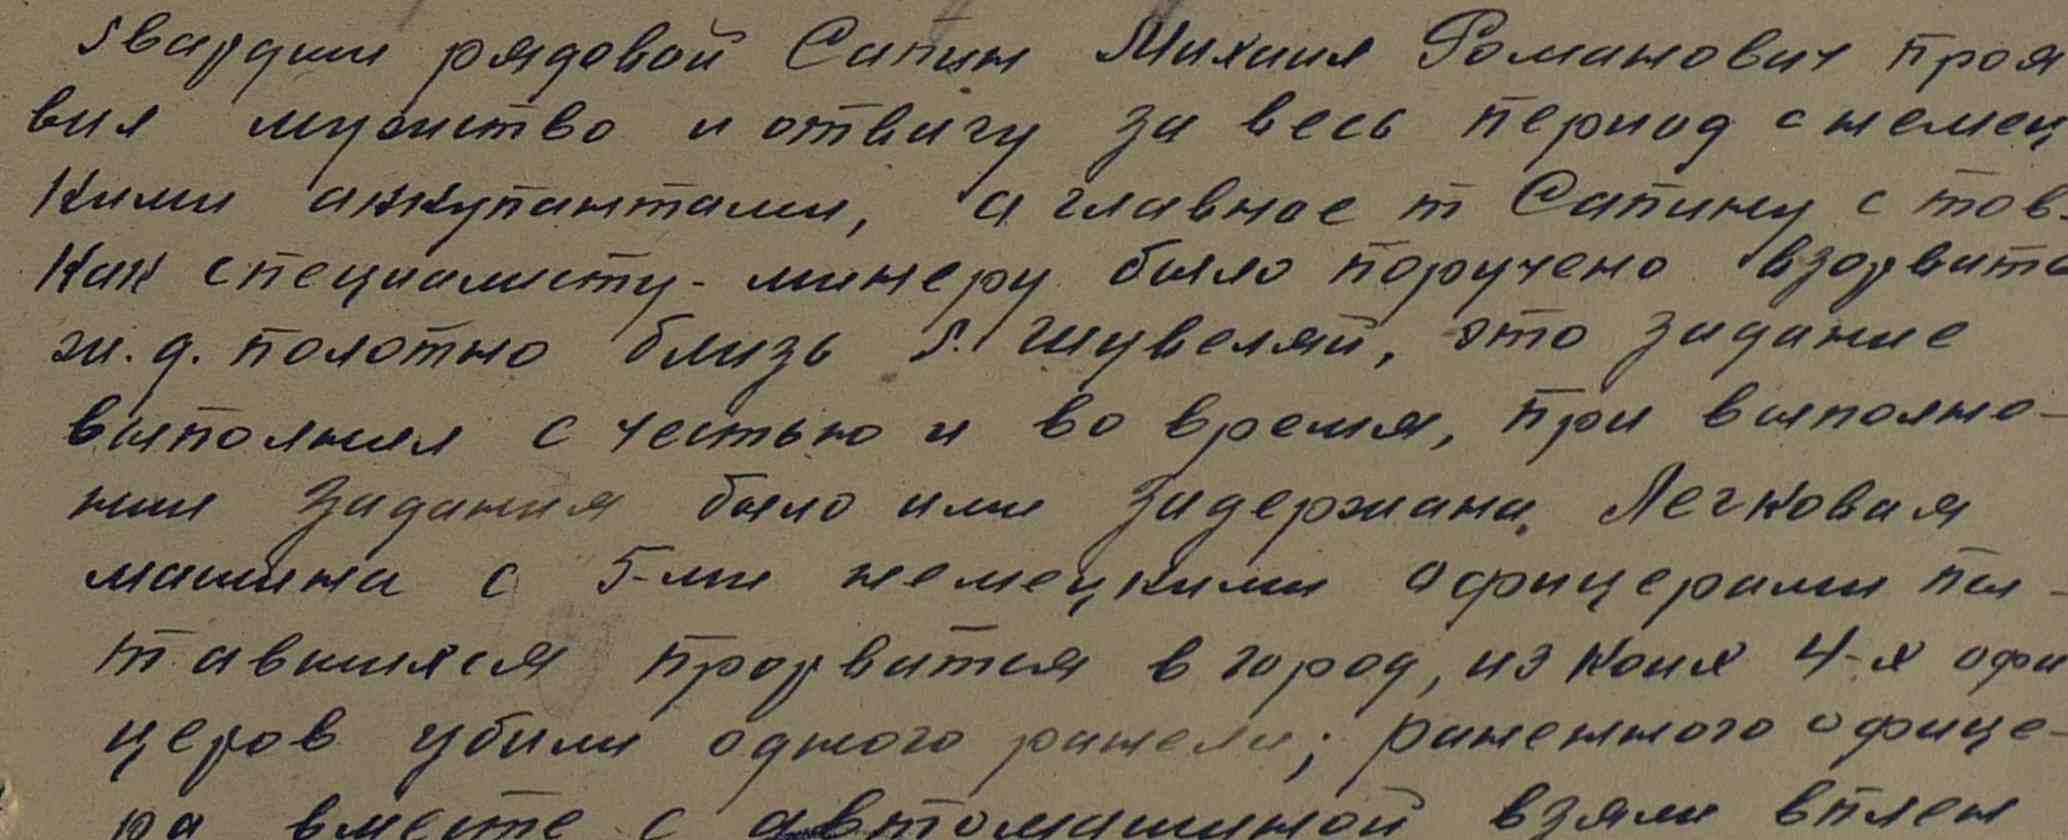 Гвардии рядовой Сапин Михаил Романович проя
вил мужество и отвагу за весь период с немец
кими аккупантами, а главное т Сапину с тов.
Как специалисту-минеру было поручено взорвать
ж.д. полотно близь г. Шувеляй, это задание
выполнил с честью и во время, при выполне-
нии задания было ими задержана Легковая
машина с 5-ми немецкими офицерами пы-
тавшихся прорватся в город, из коих 4-х офи
церов убили одного ранели; раненного офице-
ра вместе с автомашиной взяли вплен